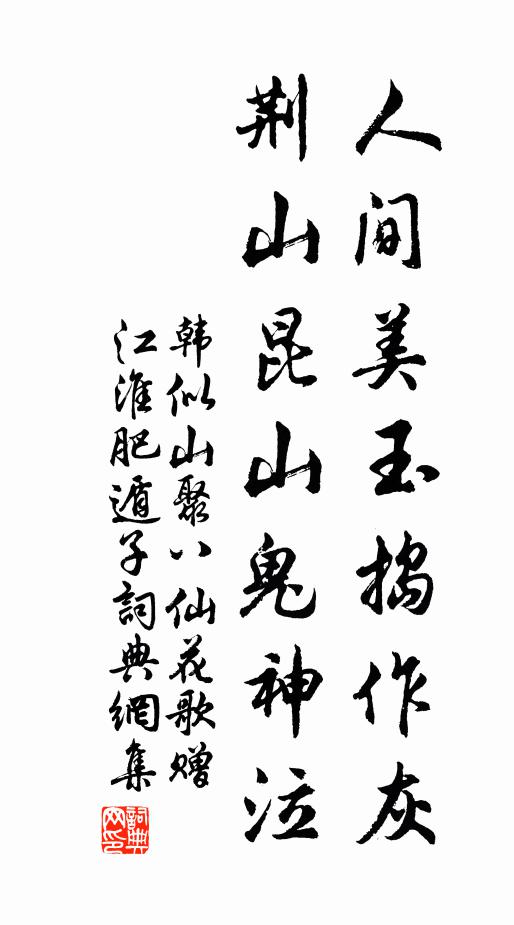 人间美玉捣作灰
荆山昆山鬼神泣
韩似山聚八仙花歌赠
江淮肥遁子詞典網集
詞典网印